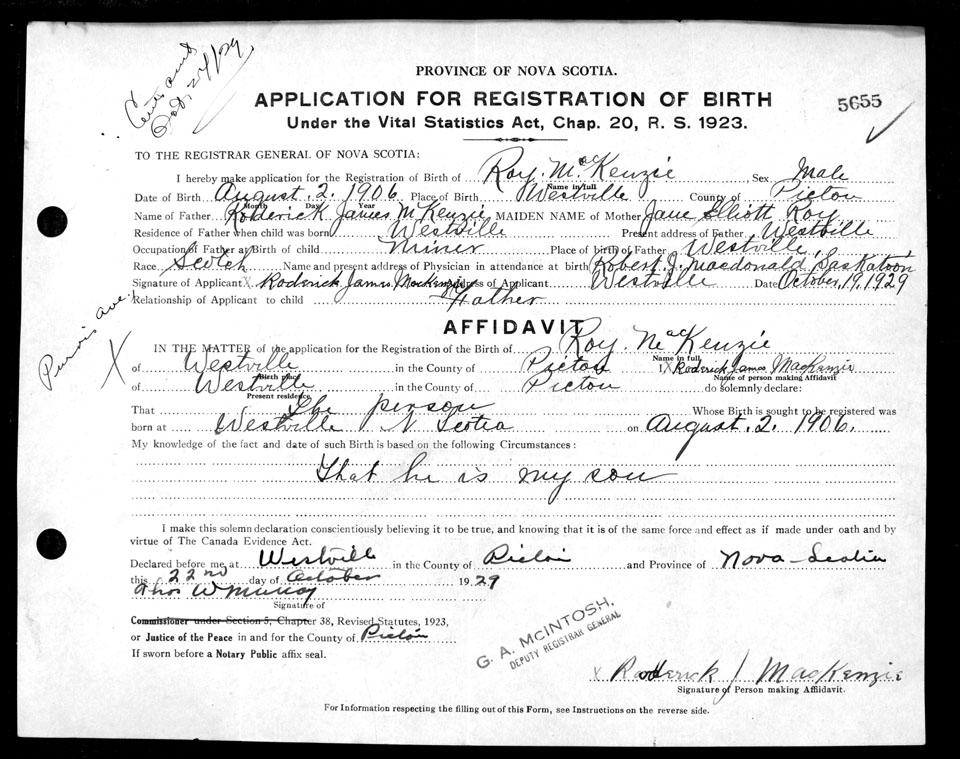 Cert and
Oct. 24/29
PROVINCE OF NOVA SCOTIA.
APPLICATION FOR REGISTRATION OF BIRTH
5655
Under the Vital Statistics Act, Chap. 20, R. S. 1923.
TO THE REGISTRAR GENERAL OF NOVA SCOTIA:
I hereby make application for the Registration of Birth of Roy. MacKenzie Sex Male
Name in full
Date of Birth August 2. 1906 Place of Birth Westville County of Pictou
Month Year Day
Name of Father Roderick James McKenzie MAIDEN NAME of Mother Jane Elliott Roy
Residence of Father when child was born Westville Present address of Father Westville
Occupation of Father at Birth of child Miner Place of birth of Father Westville,
Race Scotch Name and present address of Physician in attendance at birth Robert J. Macdonald, Saskatoon
Signature of Applicant X Roderick James MacKenzie Address of Applicant Westville Date October, 19, 1929
Relationship of Applicant to child Father
AFFIDAVIT
IN THE MATTER of the application for the Registration of the Birth of Roy. MacKenzie
Name in full
of Westville in the County of Pictou I X Roderick James MacKenzie
Birth place Name of person making Affidavit
of Westville in the County of Pictou do solemnly declare:
Present residence
That The person Whose Birth is sought to be registered was
born at Westville N Scotia on August. 2. 1906.
My knowledge of the fact and date of such Birth is based on the following Circumstances:
That he is my son
I make this solemn declaration conscientiously believing it to be true, and knowing that it is of the same force and effect as if made under oath and by
virtue of The Canada Evidence Act.
Declared before me at Westville in the County of Pictou and Province of Nova-Scotia
this 22nd day of October 1929
Thos W Murray
Signature of
Commissioner under Section 5, Chapter 38, Revised Statutes, 1923,
or Justice of the Peace in and for the County of Pictou
If sworn before a Notary Public affix seal.
G. A. McINTOSH,
DEPUTY REGISTRAR GENERAL
x Roderick J MacKenzie
Signature of Person making Affidavit.
For Information respecting the filling out of this Form, see Instructions on the reverse side.